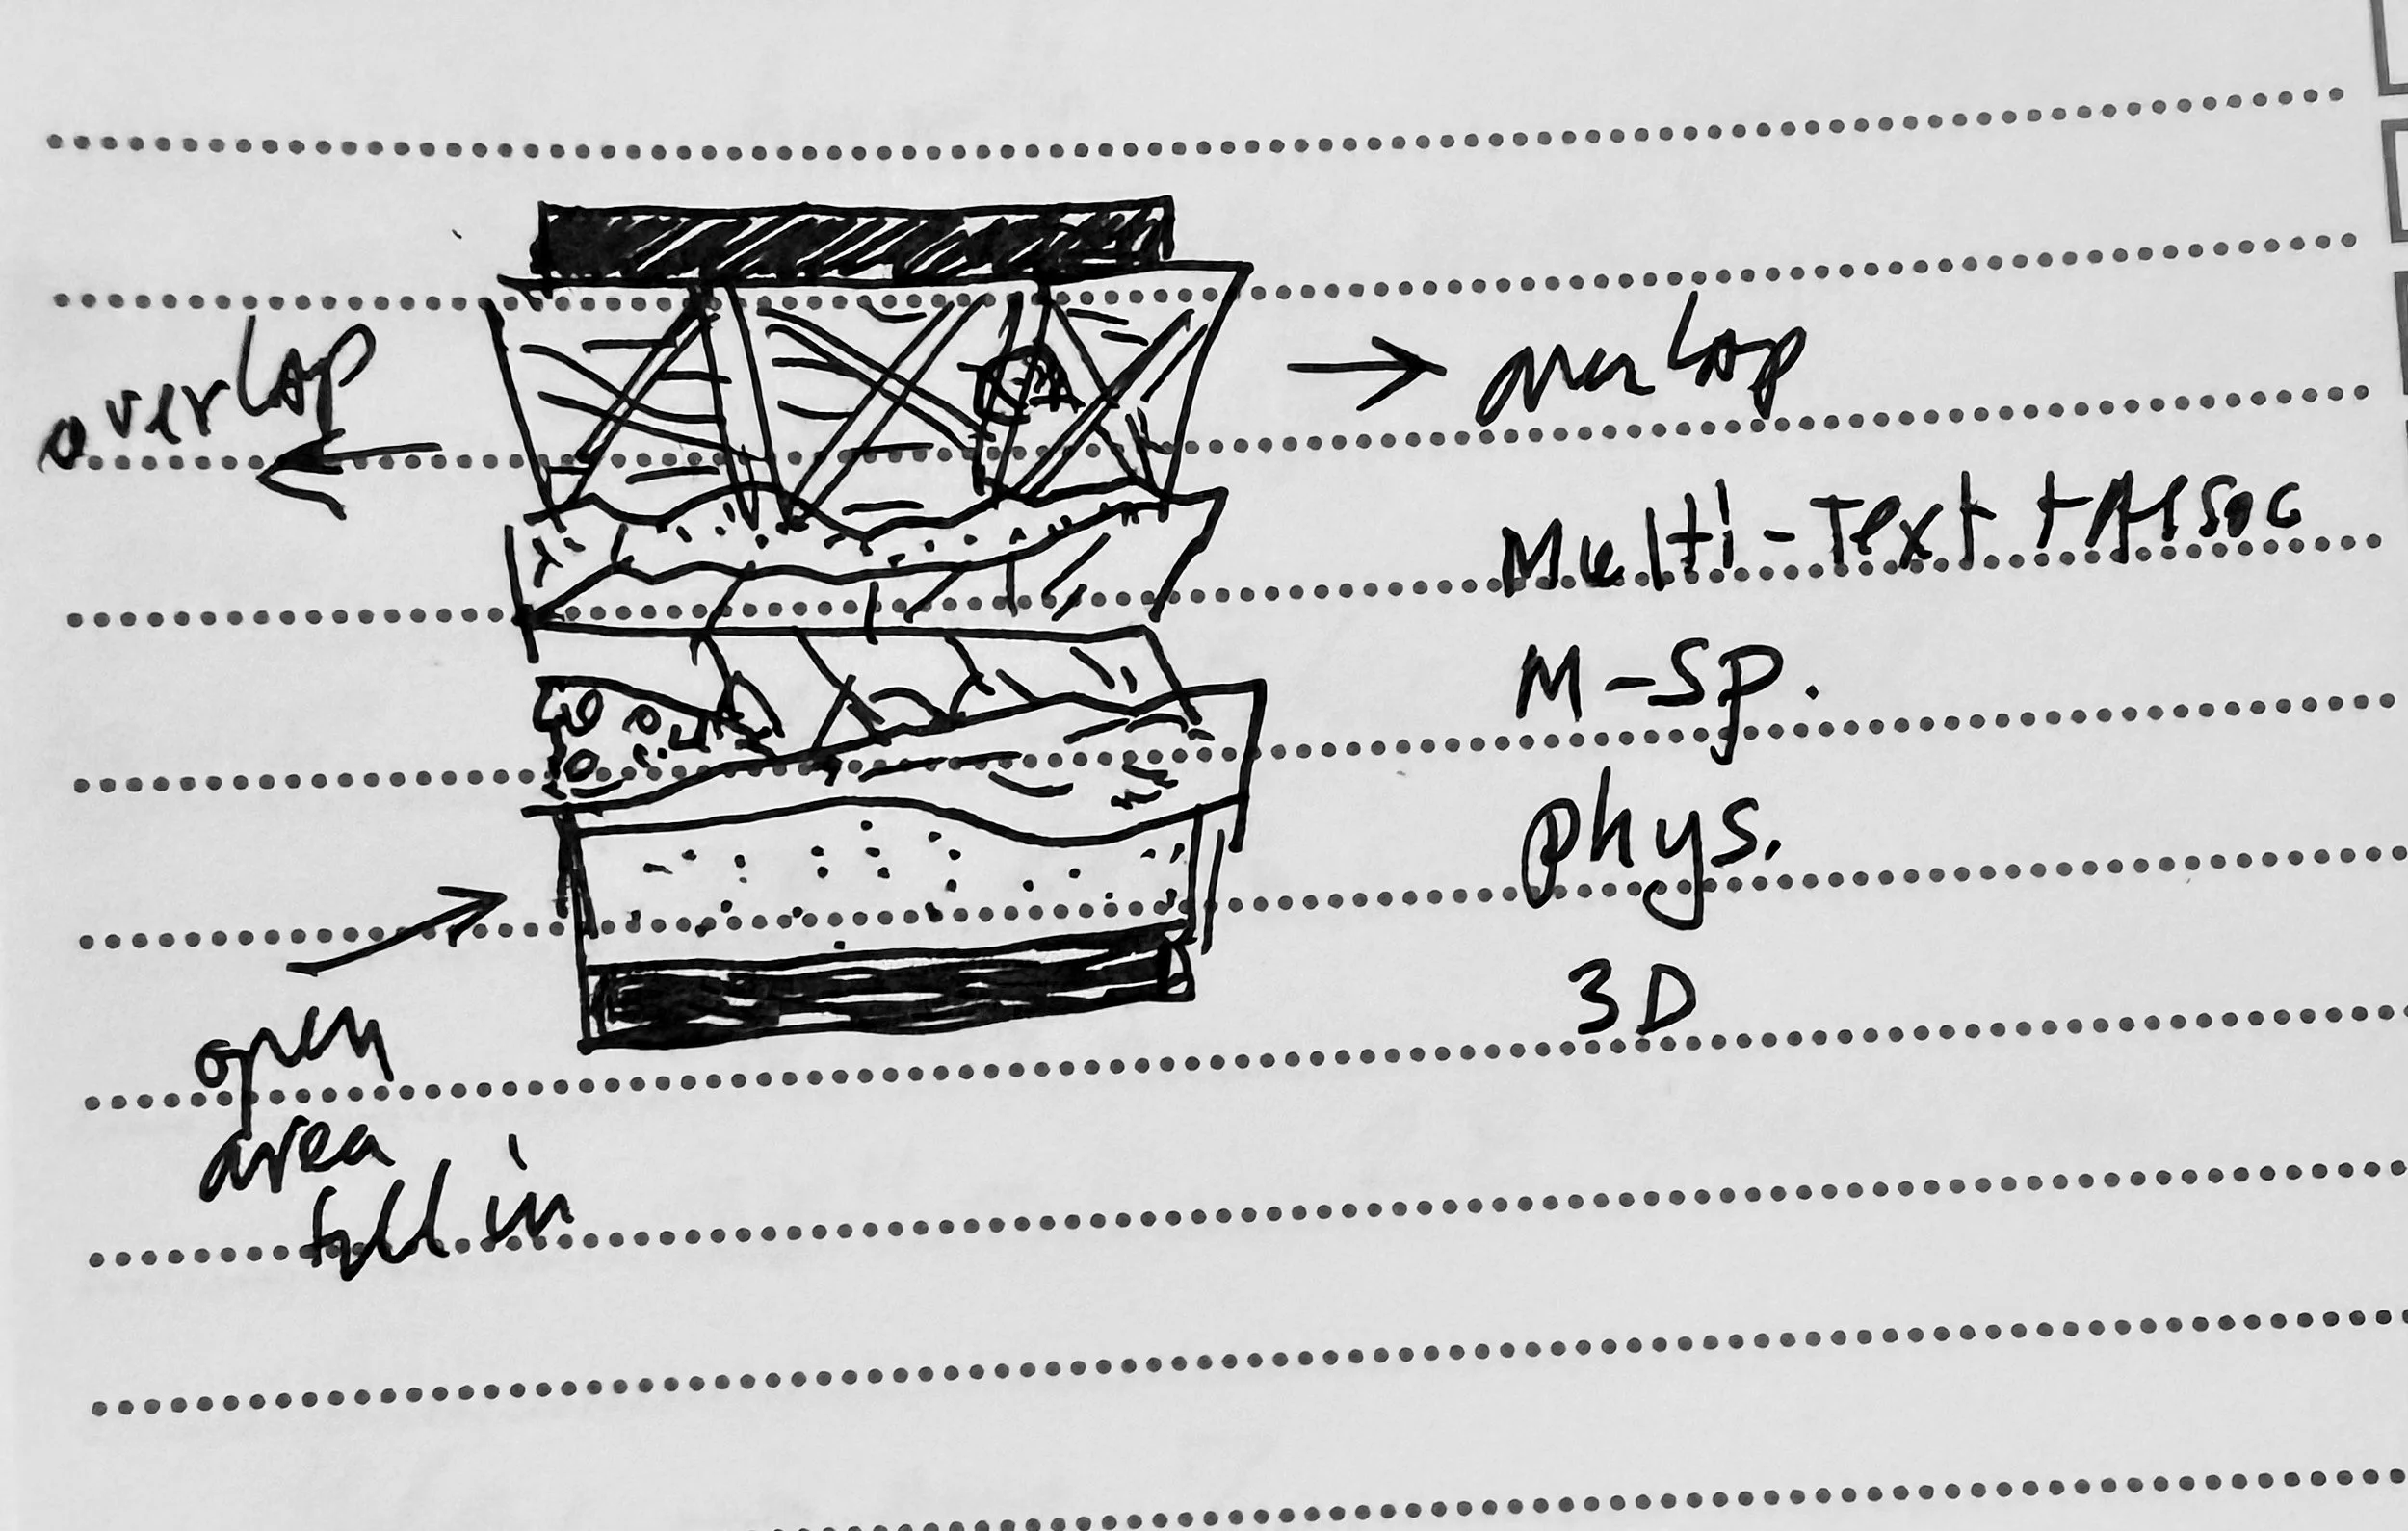 overlap
overlap
Multi-Text + Assoc
M-Sp.
phys.
3D
open
area
fill in